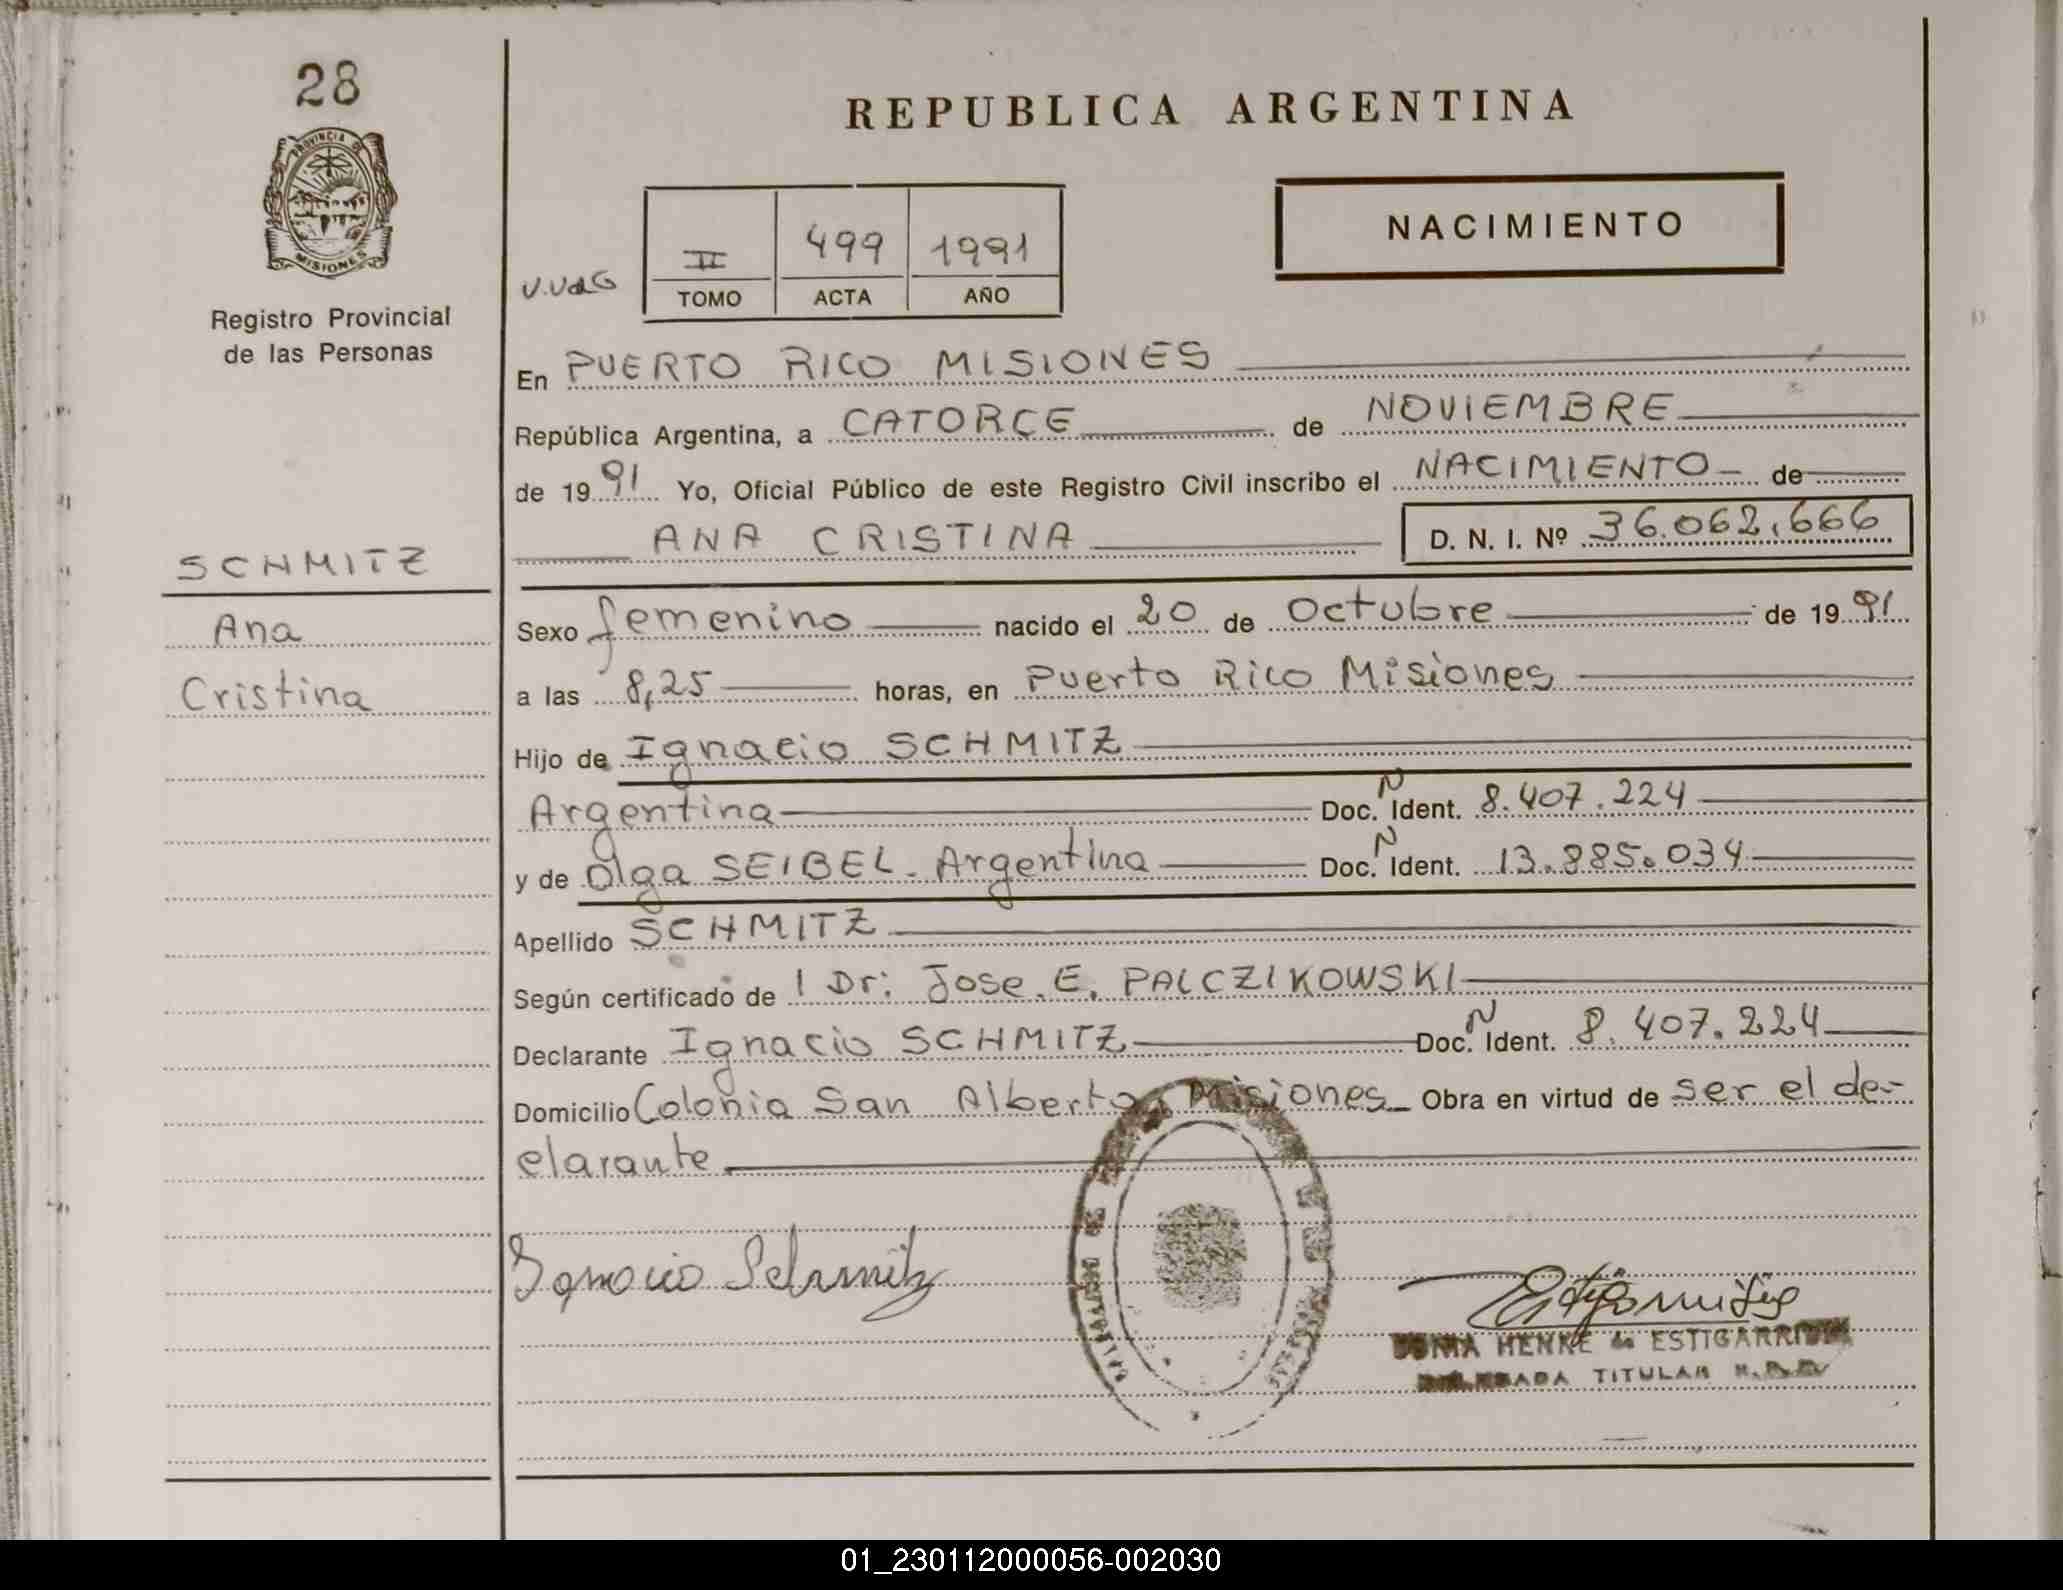 28
PROVINCIA DE
MISIONES
Registro Provincial
de las Personas
SCHMITZ
Ana
Cristina
REPUBLICA ARGENTINA
NACIMIENTO
V.VdG
II 499 1991
TOMO ACTA AÑO
En PUERTO RICO MISIONES
República Argentina, a CATORCE de NOVIEMBRE
de 1991 Yo, Oficial Público de este Registro Civil inscribo el NACIMIENTO de
ANA CRISTINA D. N. I. Nº 36.062.666
Sexo femenino nacido el 20 de Octubre de 1991
a las 8,25 horas, en Puerto Rico Misiones
Hijo de Ignacio SCHMITZ
Argentina Doc. N Ident. 8.407.224
y de Olga SEIBEL. Argentina Doc. N Ident. 13.885.034
Apellido SCHMITZ
Según certificado de l Dr: Jose. E. PALCZIKOWSKI
Declarante Ignacio SCHMITZ Doc. N Ident. 8.407.224
Domicilio Colonia San Alberto, Misiones Obra en virtud de ser el de-
clarante
Ignacio Schmitz
HENKE de ESTIGARRIBIA
TITULAR
01_230112000056-002030